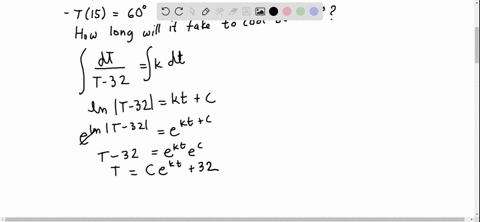 - T(15) = 60°
How long will it take to cool ?
∫ dT/(T-32) = ∫ k dt
ln |T-32| = kt + C
e^{ln |T-32|} = e^{kt + C}
T-32 = e^{kt} e^{C}
T = C e^{kt} + 32